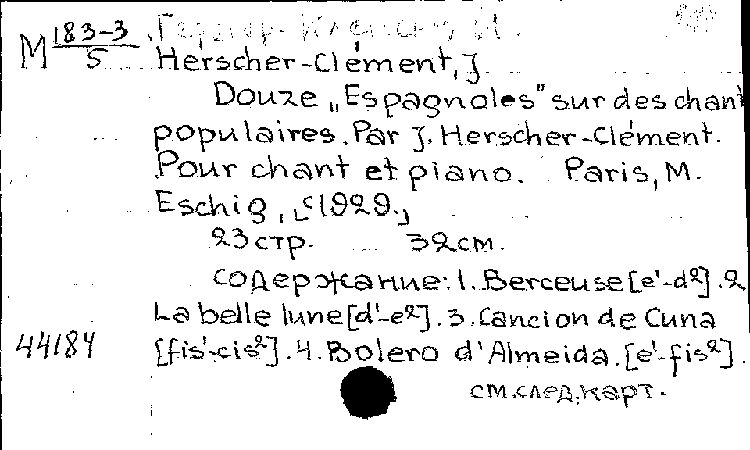 M 183-3
5
Herscher-Clément, J.
Douze „Espagnoles" sur des chant
populaires. Par J. Herscher-Clément.
Pour chant et piano. Paris, M.
Eschig, [c1929.]
23 стр. 32 см.
содержание: 1. Berceuse [e¹-d²]. 2
La belle lune [d¹-e²]. 3. Cancion de Cuna
44184 [fis¹-cis²]. 4. Bolero d'Almeida. [e¹-fis²].
см. след. карт.